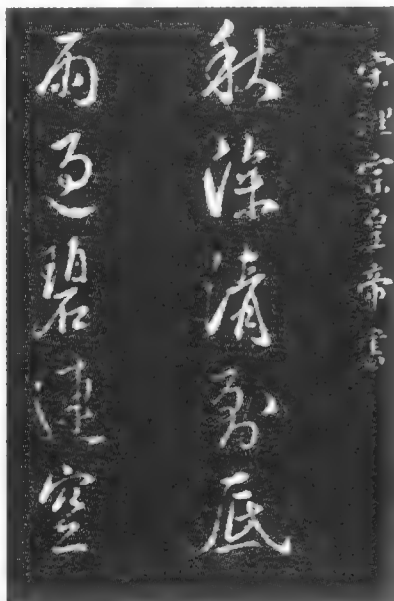 宋宗皇帝書
秋深清到底
雨過碧連空